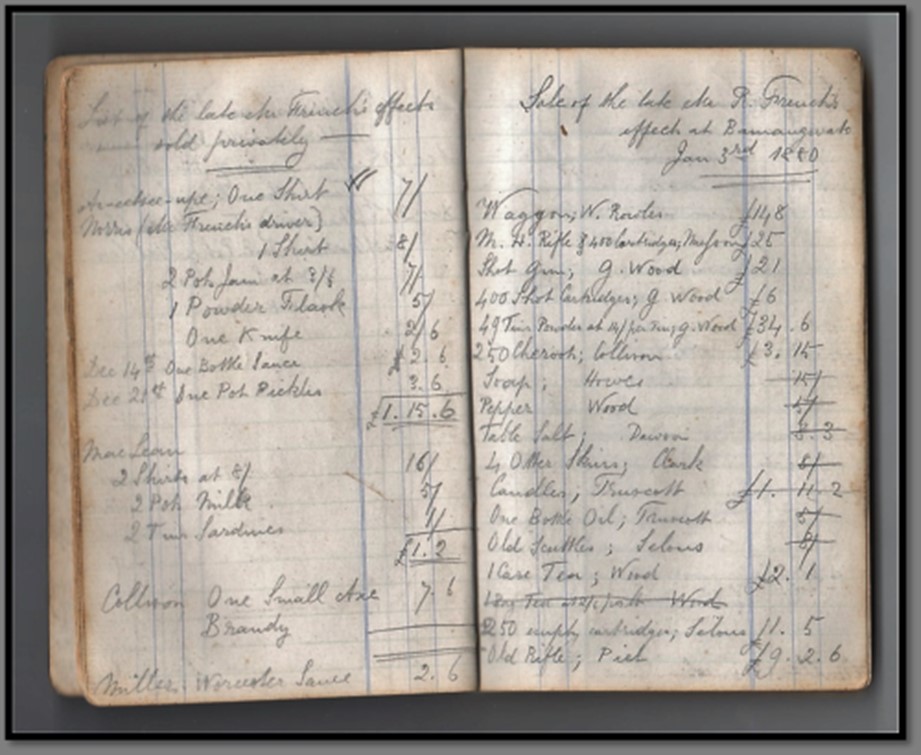 List of the late Mr French's effects
sold privately
One Shirt 7/
Norris (Mr French's driver)
1 Shirt 8/
2 Pots Jam at 3/6 7/
1 Powder Flask 5/
One Knife 2/6
Dec 14th One Bottle Sauce £ 2 6
Dec 21st One Pot Pickles 3.6
£1.15.6
MacLean
2 Shirts at 8/ 16/
2 Pots Milk 5/
2 Tins Sardines 1/
£1.2
Collison One Small Axe 7.6
Brandy
Miller. Worcester Sauce 2.6
Sale of the late Mr R. French's
effects at Bamangwato
Jan 3rd 1880
Waggon; W. Rowles £148
M. H. Rifle & 400 Cartridges; £25
Shot Gun; G. Wood £21
400 Shot Cartridges; G Wood £6
49 Tins Powder at 14/ per Tin; G. Wood £34.6
250 Cheroots; Collison £3.15
Soap; Howes 15/
Pepper Wood 5/
Table Salt; Dawson 8.3
4 Otter Skins; Clark 8/
Candles; Truscott £1.11.2
One Bottle Oil; Truscott 5/
Old Scuttles; Selous 8/
1 Case Tea; Wood £2.1
Tea at Wood
250 empty cartridges; Selous £1.5
Old Rifle; Piet £9.2.6